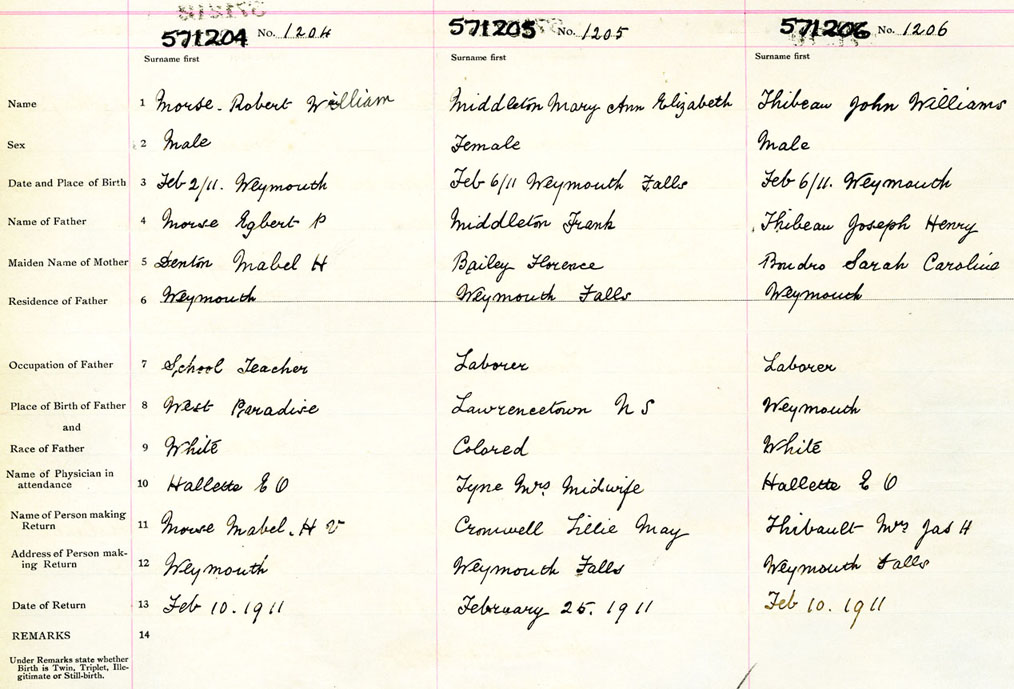 571204 No. 1204 571205 No. 1205 571206 No. 1206
Surname first Surname first Surname first
Name 1 Morse. Robert William Middleton Mary Ann Elizabeth Thibeau John Williams
Sex 2 Male Female Male
Date and Place of Birth 3 Feb 2/11. Weymouth Feb 6/11 Weymouth Falls Feb 6/11. Weymouth
Name of Father 4 Morse Egbert P Middleton Frank Thibeau Joseph Henry
Maiden Name of Mother 5 Denton Mabel H Bailey Florence Boudro Sarah Caroline
Residence of Father 6 Weymouth Weymouth Falls Weymouth
Occupation of Father 7 School Teacher Laborer Laborer
Place of Birth of Father 8 West Paradise Lawrencetown N S Weymouth
and
Race of Father 9 White Colored White
Name of Physician in
attendance 10 Hallette E O Tyne Mrs Midwife Hallette E O
Name of Person making
Return 11 Morse Mabel. H V Cromwell Lillie May Thibault Mrs Jas H
Address of Person mak-
ing Return 12 Weymouth Weymouth Falls Weymouth Falls
Date of Return 13 Feb 10. 1911 February 25. 1911 Feb 10. 1911
REMARKS 14
Under Remarks state whether
Birth is Twin, Triplet, Ille-
gitimate or Still-birth.